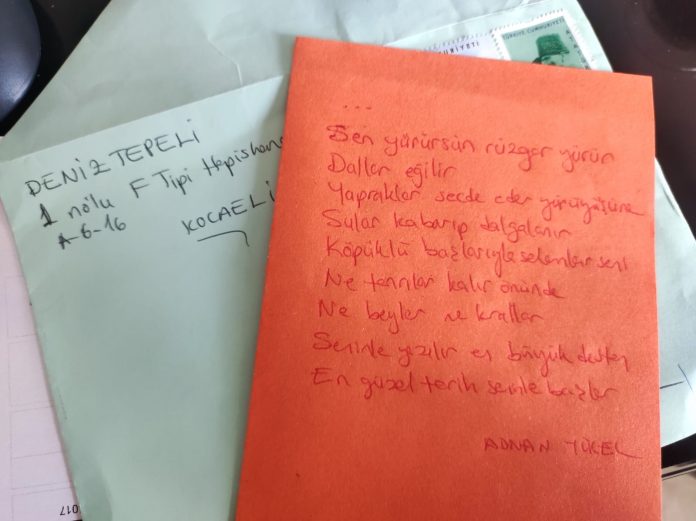 DENİZ TEPELİ
1 no'lu F Tipi Hapishane
A-6-16
KOCAELİ
TÜRKİYE CUMHURİYETİ
...
Sen yürürsün rüzgar yürür
Dallar eğilir
Yapraklar secde eder yürüyüşüne
Sular kabarıp dalgalanır
Köpüklü başlarıyla selamlar seni
Ne tanrılar kalır önünde
Ne beyler ne krallar
Seninle yazılır en büyük destan
En güzel tarih senle başlar
ADNAN YÜCEL
017